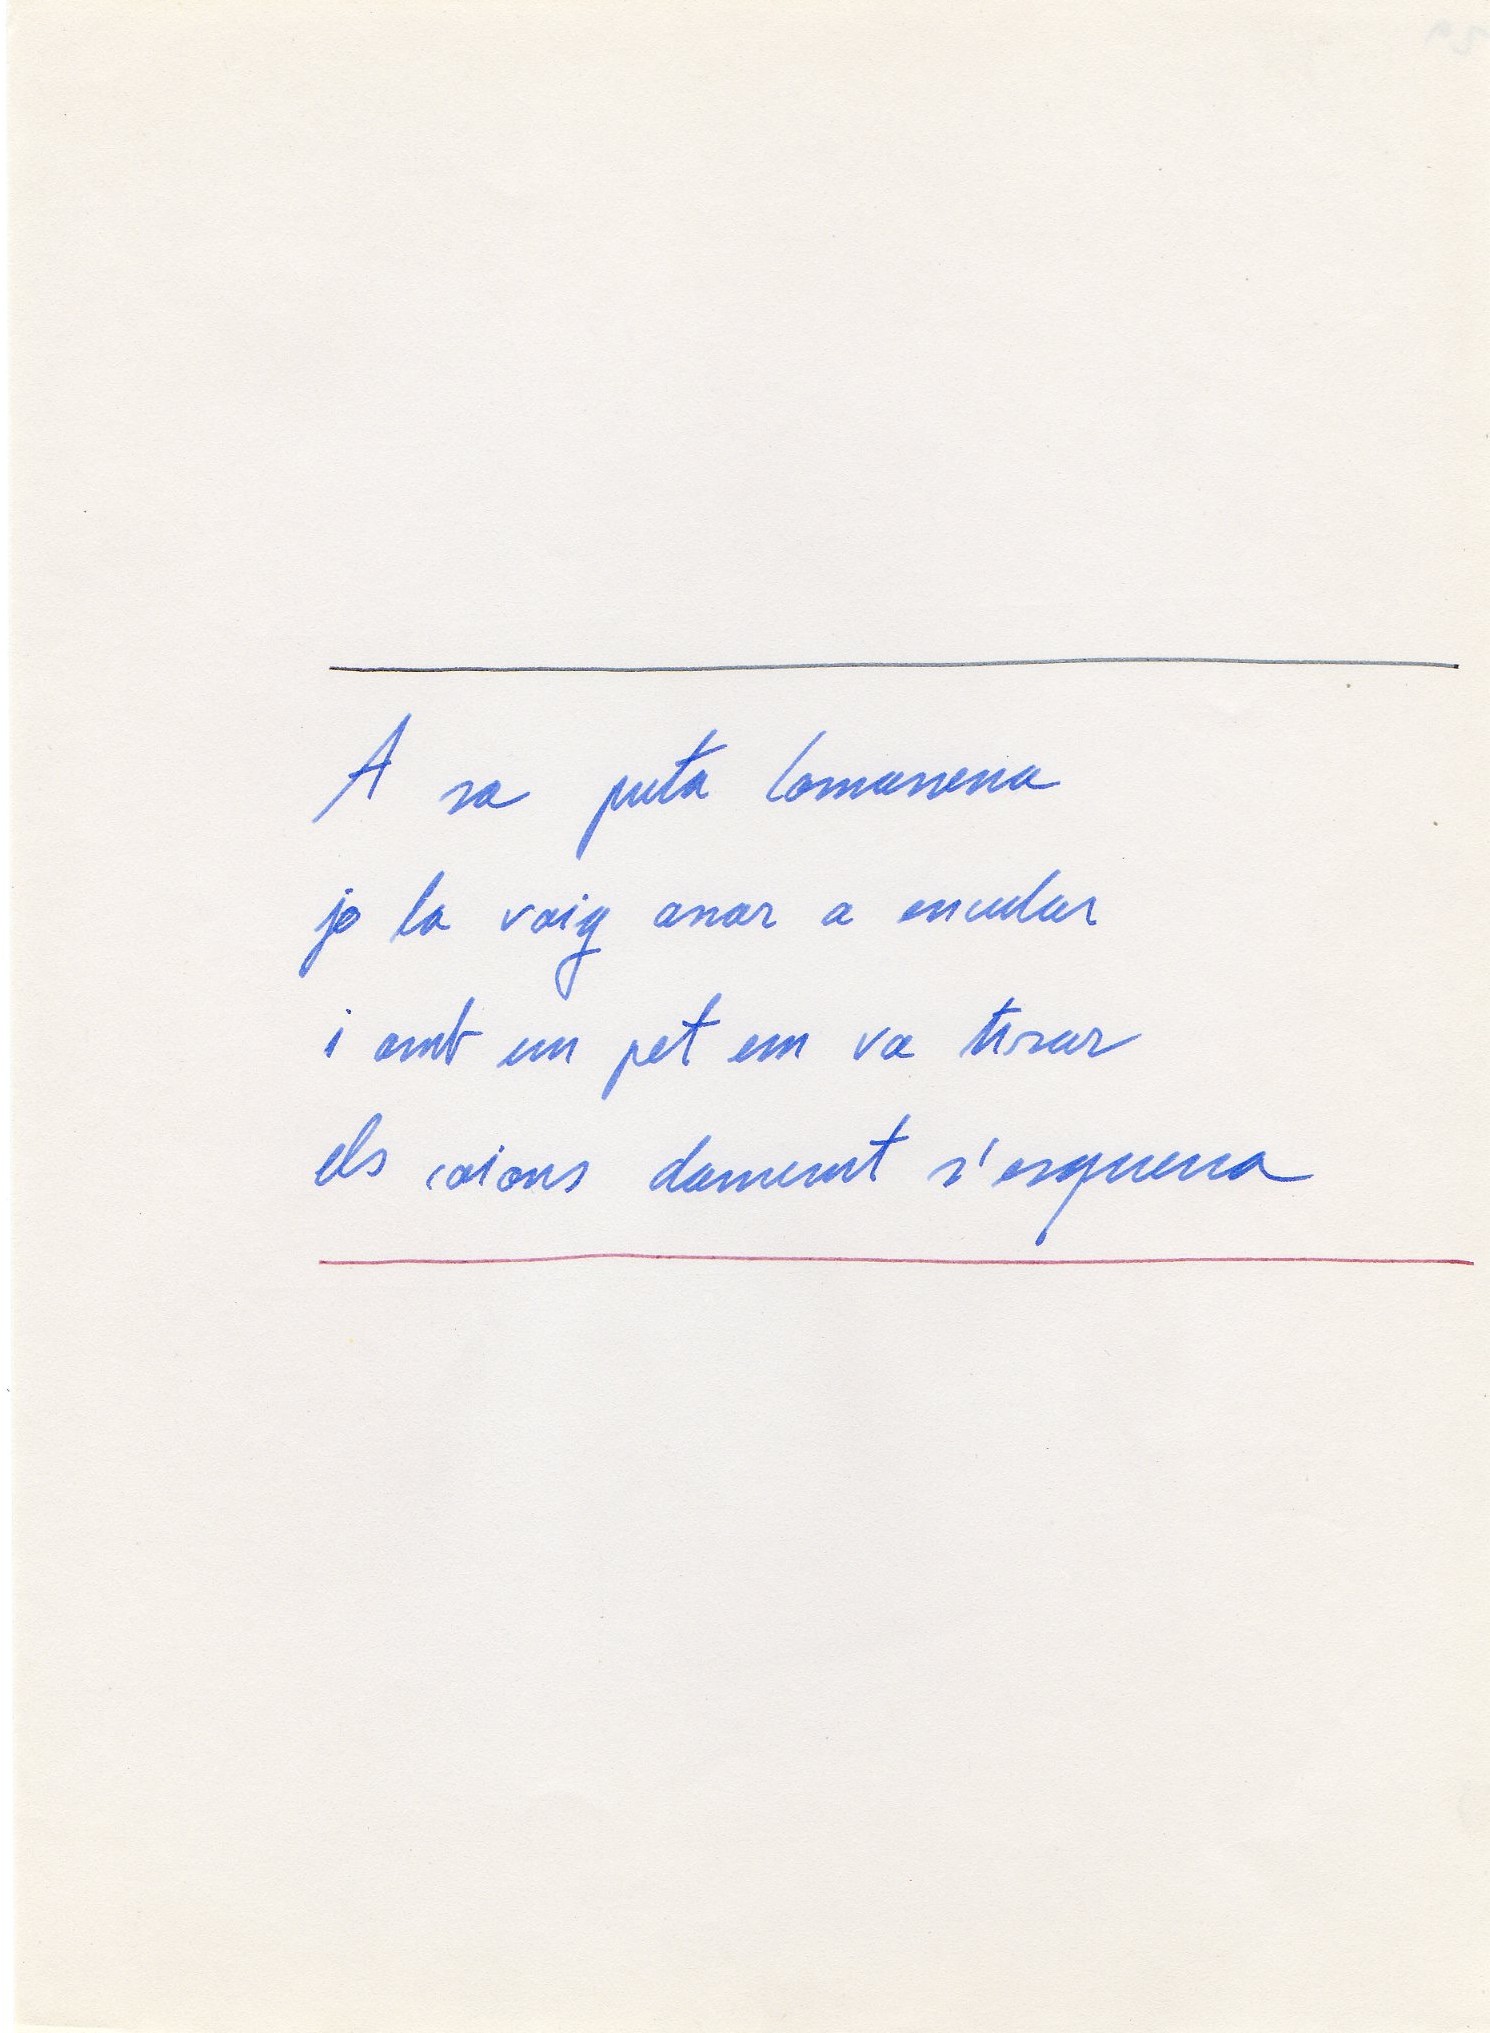 A sa puta
jo la vaig anar a encular
i amb un pet em va tirar
els coions damunt s'esquena